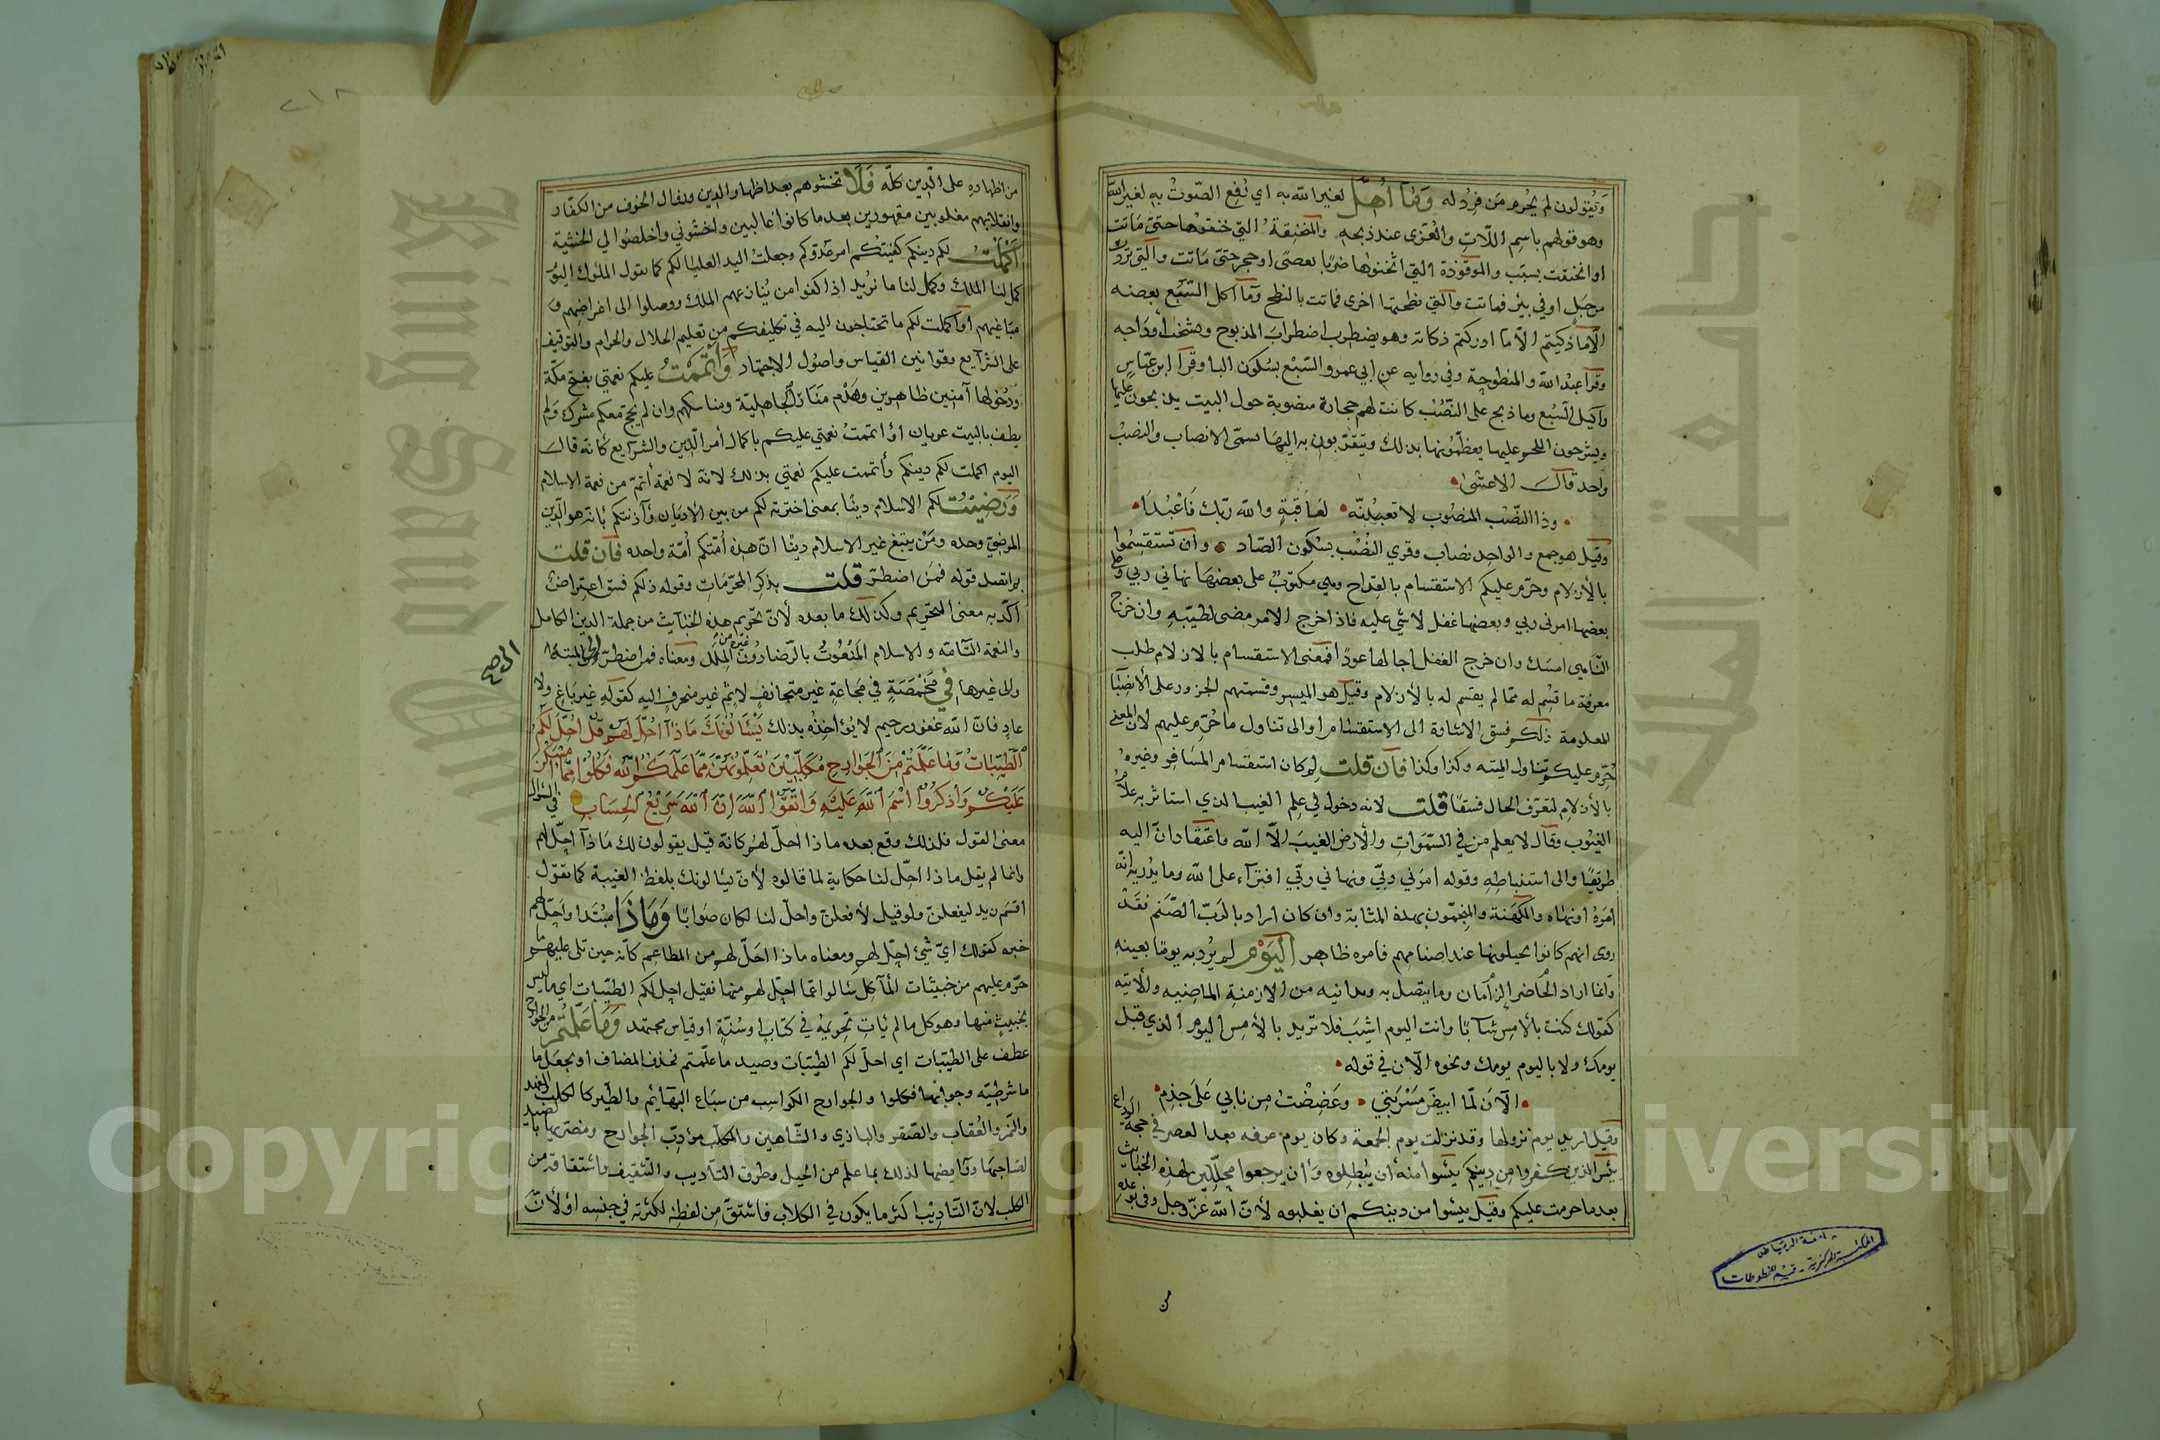 ويقولون لم يحرم من فزد له وما أهل لغير الله به اي رفع الصوت به لغير الله
وهو قولهم باسم اللات والعزى عند ذبحه والمنخنقة التي خنقوها حتى ماتت
او انخنقت بسبب والموقوذة التي اثخنوها ضربا بعصى او حجر حتى ماتت والتي تردت
من جبل او في بئر فماتت والتي نطحتها اخرى فماتت بالنطح وما اكل السبع بعضه
الا ما ذكيتم الا ما ادركتم ذكاته وهو يضطرب اضطراب المذبوح وتشخب أوداجه
وقرأ عبد الله والمنطوحة وفي رواية عن ابي عمرو السبع بسكون الباء وقرأ ابن عباس
واكيل السبع وما ذبح على النصب كانت لهم حجارة منصوبة حول البيت يذبحون عليها
ويشرحون اللحم عليها يعظمونها بذلك ويتقربون به اليها تسمى الانصاب والنصب
واحد قال الاعشى
وذا النصب المنصوب لا تعبدنه لعاقبة والله ربك فاعبدا
وقيل هو جمع والواحد نصاب وقري النصب بسكون الصاد وأن تستقسموا
بالأزلام وحرم عليكم الاستقسام بالقداح وهي مكتوب على بعضها نهاني ربي وعلى
بعضها امرني ربي وبعضها غفل لا شي عليه فاذا خرج الامر مضى لطيته وان خرج
الناهي امسك وان خرج الغفل اجالها عودا فمعنى الاستقسام بالازلام طلب
معرفة ما قسم له مما لم يقسم له بالأزلام وقيل هو الميسر وقسمتهم الجزور على الأنصباء
المعلومة ذلكم فسق الاشارة الى الاستقسام او الى تناول ما حرم عليهم لان المعنى
حرم عليكم تناول الميته وكذا وكذا فان قلت لم كان استقسام المسافر وغيره
بالأزلام لتعرف الحال فسقا قلت لانه دخول في علم الغيب الذي استاثر به علام
الغيوب وقال لا يعلم من في السموات والأرض الغيب الا الله واعتقاد ان اليه
طريقا والى استنباطه وقوله امرني ربي ونهاني ربي افتراء على الله وما يدريه انه
امره او نهاه والكهنة والمنجمون بهذه المثابة وان كان اراد بالرب الصنم فقد
روى انهم كانوا يجيلونها عند اصنامهم فامره ظاهر اليوم لم يرد به يوما بعينه
وانما اراد الزمان الحاضر وما يتصل به ويدانيه من الازمنة الماضيه والآتيه
كقولك كنت بالأمس شابا وانت اليوم اشيب فلا تريد بالأمس اليوم الذي قبل
يومك ولا باليوم يومك ونحوه الآن في قوله
الآن لما ابيض مسربتي وعضضت من نابي على جذم
وقيل اريد يوم نزولها وقد نزلت يوم الجمعة وكان يوم عرفه بعد العصر في حجة الوداع
يئس الذين كفروا من دينكم يئسوا منه أن يبطلوه وأن يرجعوا محللين لهذه الخبائث
بعد ما حرمت عليكم وقيل يئسوا من دينكم ان يغلبوه لأن الله عز وجل وفى بوعده
من
من اظهاره على الدين كله فلا تخشوهم بعد اظهار الدين وزوال الخوف من الكفار
وانقلابهم مغلوبين مقهورين بعد ما كانوا غالبين واخشوني واخلصوا لي الخشية
اكملت لكم دينكم كفيتكم امر عدوكم وجعلت اليد العليا لكم كما تقول الملوك اليوم
كمل لنا الملك وكمل لنا ما نريد اذا كفوا من ينازعهم الملك ووصلوا الى اغراضهم و
مباغيهم او أكملت لكم ما تحتاجون اليه في تكليفكم من تعليم الحلال والحرام والتوقيف
على الشرايع وقوانين القياس واصول الاجتهاد وأتممت عليكم نعمتي بفتح مكة
ودخولها آمنين ظاهرين وهدم منار الجاهلية ومناسكهم وان لم يحج معكم مشرك ولم
يطف بالبيت عريان او اتممت نعمتي عليكم باكمال أمر الدين والشرايع كانه قال
اليوم اكملت لكم دينكم وأتممت عليكم نعمتي بذلك لانه لا نعمة أتم من نعمة الاسلام
ورضيت لكم الاسلام دينا بمعنى اخترته لكم من بين الأديان وآذنتكم بانه هو الدين
المرضي وحده ومن يبتغ غير الاسلام دينا ان هذه أمتكم أمة واحده فان قلت
بم اتصل قوله فمن اضطر قلت بذكر المحرمات وقوله ذلكم فسق اعتراض
اكد به معنى التحريم وكذلك ما بعده لأن تحريم هذه الخبائث من جملة الدين الكامل
والنعمة التامة والاسلام المنعوت بالرضا دون غيره من الملل ومعناه فمن اضطر الى الميتة
والى غيرها في مخمصة في مجاعة غير متجانف لاثم غير منحرف اليه كقوله غير باغ ولا
عاد فان الله غفور رحيم لا يؤاخذه بذلك يسئلونك ماذا أحل لهم قل أحل لكم
الطيبات وما علمتم من الجوارح مكلبين تعلمونهن مما علمكم الله فكلوا مما أمسكن
عليكم واذكروا اسم الله عليه واتقوا الله ان الله سريع الحساب في السؤال
معنى القول فلذلك وقع بعده ماذا احل لهم كانه قيل يقولون لك ماذا احل لهم
وانما لم يقل ماذا احل لنا حكاية لما قالوه لأن يسألونك بلفظ الغيبة كما تقول
اقسم زيد ليفعلن ولو قيل لأفعلن واحل لنا لكان صوابا وماذا مبتدا واحل لهم
خبره كقولك اي شئ احل لهم ومعناه ماذا احل لهم من المطاعم كانه حين تلى عليهم ما
حرم عليهم من خبيثات المآكل سالوا عما احل لهم منها فقيل احل لكم الطيبات اي ما ليس
بخبيث منها وهو كل ما لم يات تحريمه في كتاب او سنة او قياس مجتهد وما علمتم من الجوارح
عطف على الطيبات اي احل لكم الطيبات وصيد ما علمتم فحذف المضاف او تجعل ما
ما شرطيه وجوابها فكلوا والجوارح الكواسب من سباع البهائم والطير كالكلب والفهد
والنمر والعقاب والصقر والبازي والشاهين والمكلب مؤدب الجوارح ومضريها بالصيد
لصاحبها ورائضها لذلك بما علم من الحيل وطرق التأديب والتثقيف واشتقاقه من
الكلب لان التاديب اكثر ما يكون في الكلاب فاشتق من لفظه لكثرته في جنسه او لأن
٢١٨
الى صح
المكتبة المركزية - قسم المخطوطات
King Saud University
جامعة الملك سعود
1957
Copyright © King Saud University